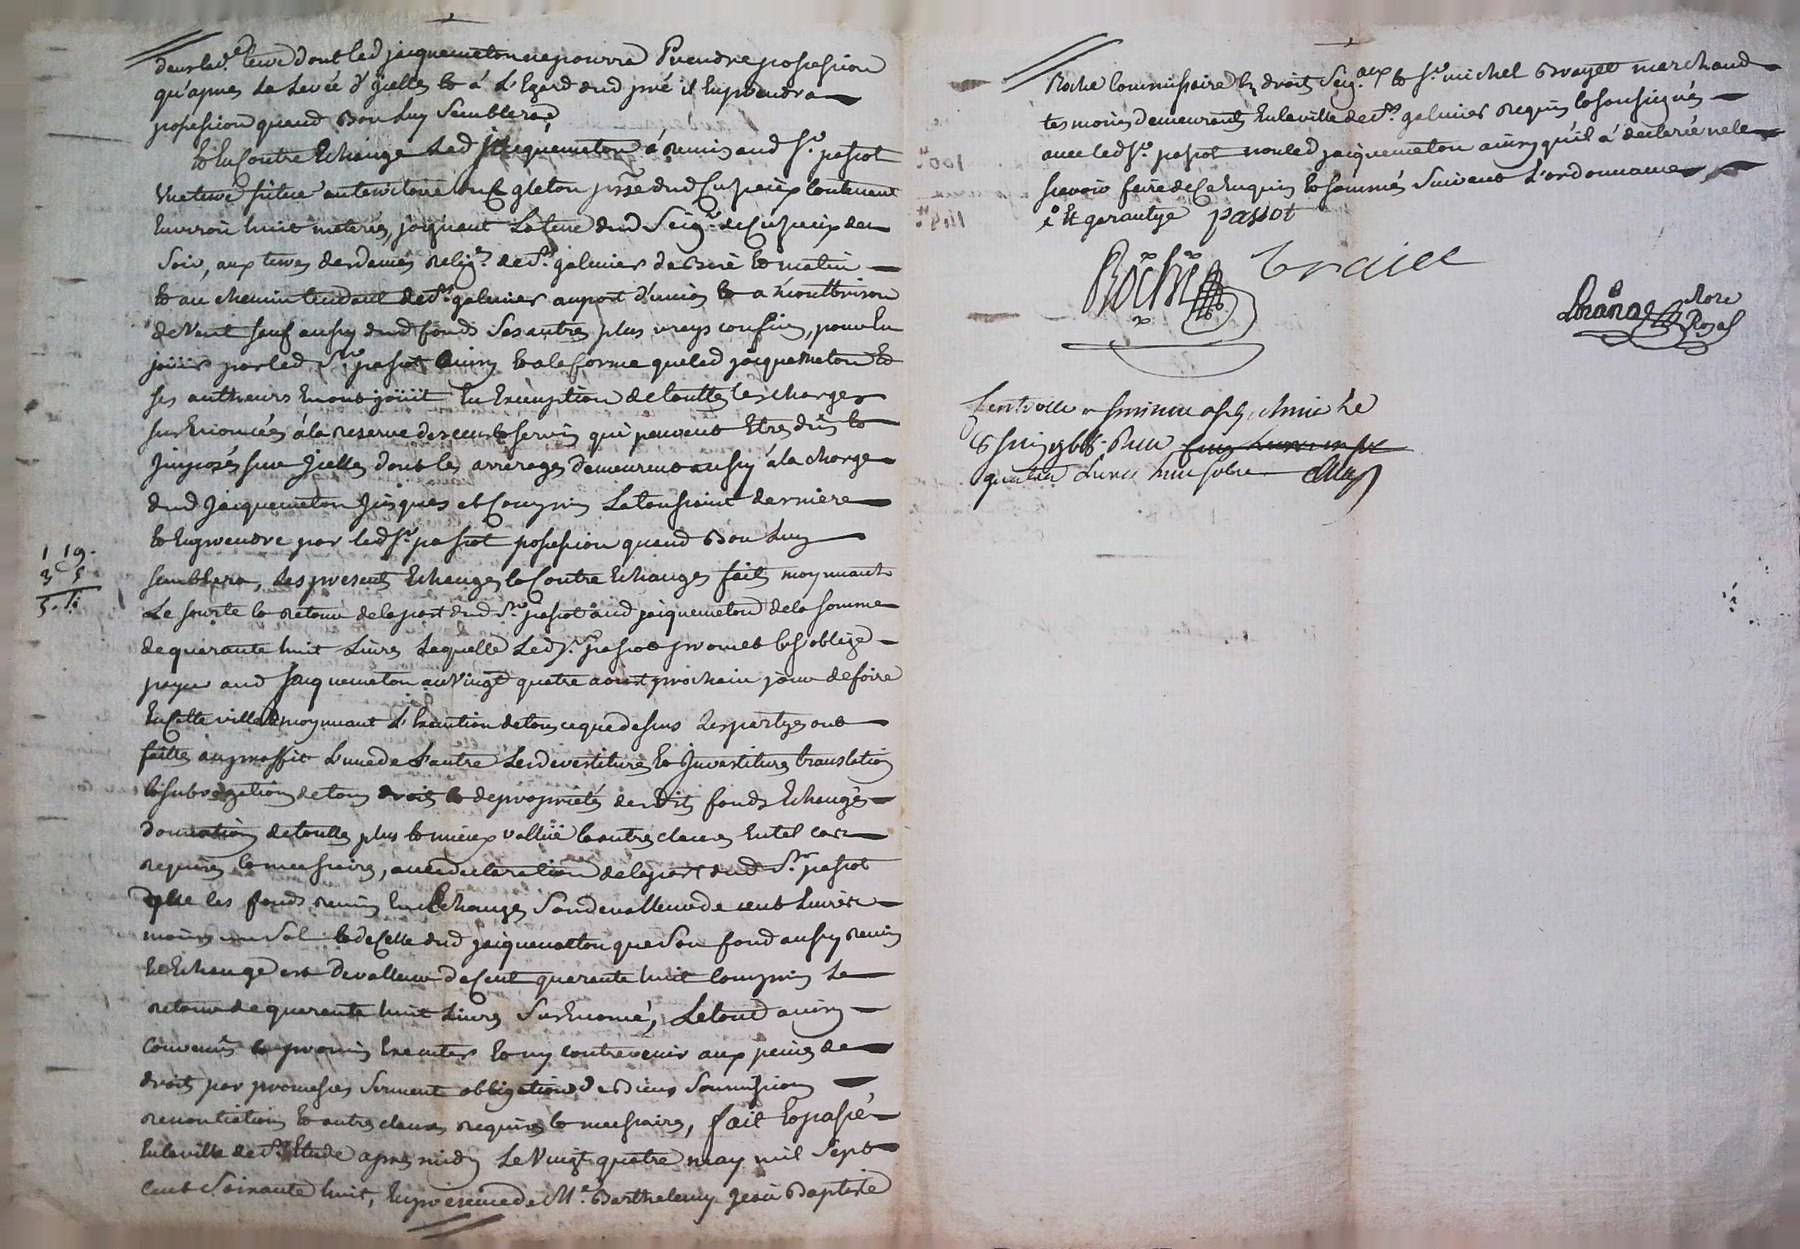 dans lad.e terre dont led jacquemeton ne pourra Prendre possession
qu'apres La Levée d'jcelles & à L'Egard dud pré il En prendra
possession quand Bon Luy Semblera
& En Contre Echange Led jacquemeton á remis aud Sr. passot
Une terre située au territoire de gleton prsse dud Cuzieux Contenant
Environ huit meterés, joignant La terre dud Seigr. de Cuzieux de
Soir, aux terres des dames relig.s de St. galmier de Bize & matin
& au chemin tendant de St. galmier au port d'unias & a montbrison
de Vent Sauf aussy dud fonds Ses autres plus vrays confins, pour En
jouir par led Sr. passot Ainsy & a la forme que led jacquemeton &
Ses autheurs En ont joüit En Exemption de touttes Les charges
Sus Enoncées á la reserve des cens & servis qui peuvent Etre dûs &
Imposés Sur Jcelles dont les arrerages demeurent aussy á la charge
dud Jacquemeton Jusques et Compris La toussaint derniere
& En prendre par led Sr. passot possession quand Bon Luy
Semblera, Les presents Echanges & Contre Echanges faits moyennant
Le soute & retour de la part dud Sr. passot aud jacquemeton de la Somme
de quarante huit Livres Laquelle Led Sr. passot promet & S'oblige
payer aud Jacquemeton au Vingt quatre aoust prochain jour de foire
En Cette ville & moyennant L'Execution de tout ce que dessus Les partyes ont
faittes au proffit L'une de L'autre Les devestitures & Investitures translation
& Subrogation de tous droits & de proprietés desdits fonds Echangés
donnation de touttes plus & mieux vallüe & autres clauses En tel cas
requises & necessaires, avec declaration de la part dud Sr. passot
que les fonds remis En Echanges Sont de valleur de cent Livres
moins un Sol & de Celle dud jacquemetton que Son fond aussy remis
En Echange est de valleur de Cent quarante huit Compris Le
retour de quarante huit Livres Sus Enoncé, Le tout ainsy
Convenu & promis Executer & ny contrevenir aux peines de
droit par promesses Serment obligations de Biens Soumissions
renontiations & autres clauses requises & necessaires, fait & passé
En la ville de St. Etude apres midy Le Vingt quatre may mil Sept
Cent Soixante huit, En presence de Me. Barthelemy Jean Baptiste
1 19.
3
Roche Commissaire En droits Seig.aux & Sr. michel Brayet marchand
tesmoins demeurants En la ville de St. galmier requis & soussignés
avec led Sr. passot non led jacquemeton ainsy qu'il á declaré ne le
sçavoir faire de Ce Enquis & sommés Suivant L'ordonnance
Et garantye passot
Roche braiet
Controllé
quatre Livres huit sols